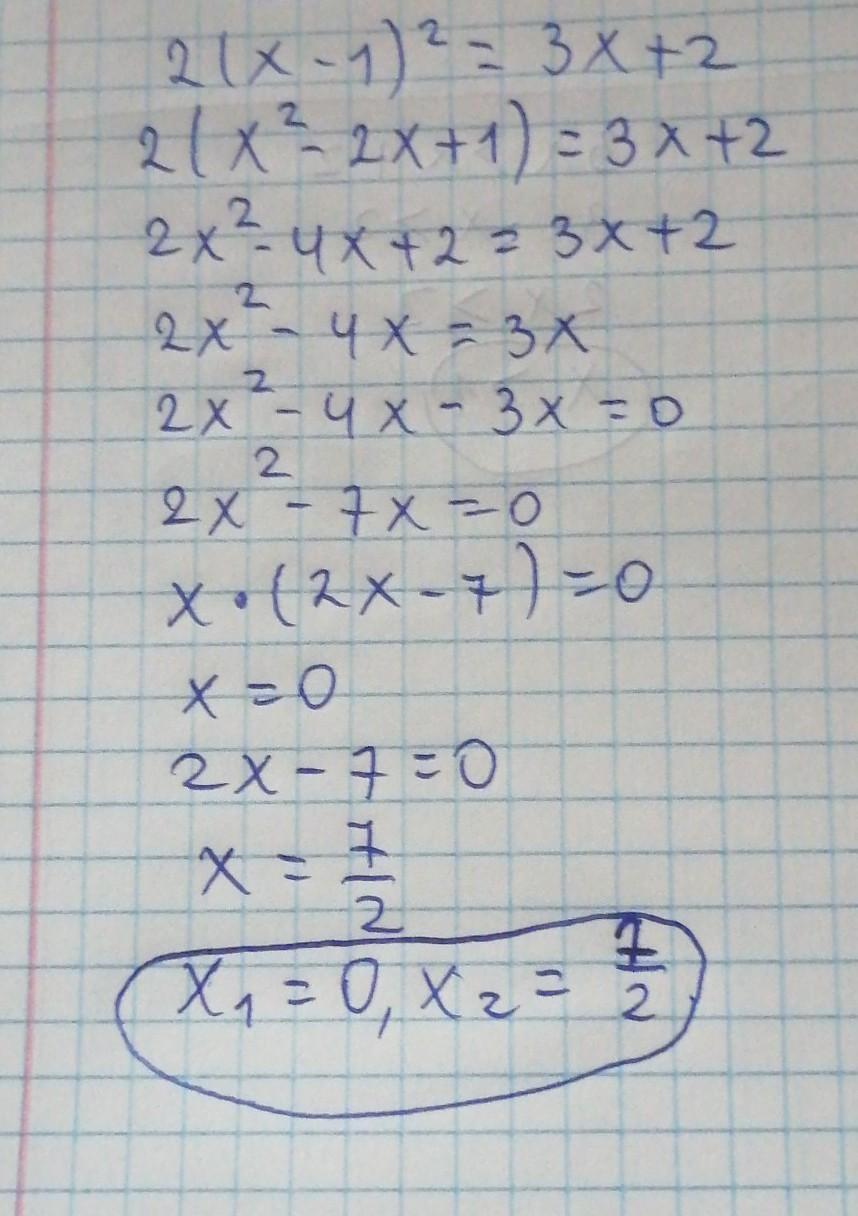 2(x-1)² = 3x+2
2(x²-2x+1) = 3x+2
2x²-4x+2 = 3x+2
2x²-4x = 3x
2x²-4x-3x = 0
2x²-7x = 0
x·(2x-7) = 0
x = 0
2x-7 = 0
x = 7/2
x₁ = 0, x₂ = 7/2